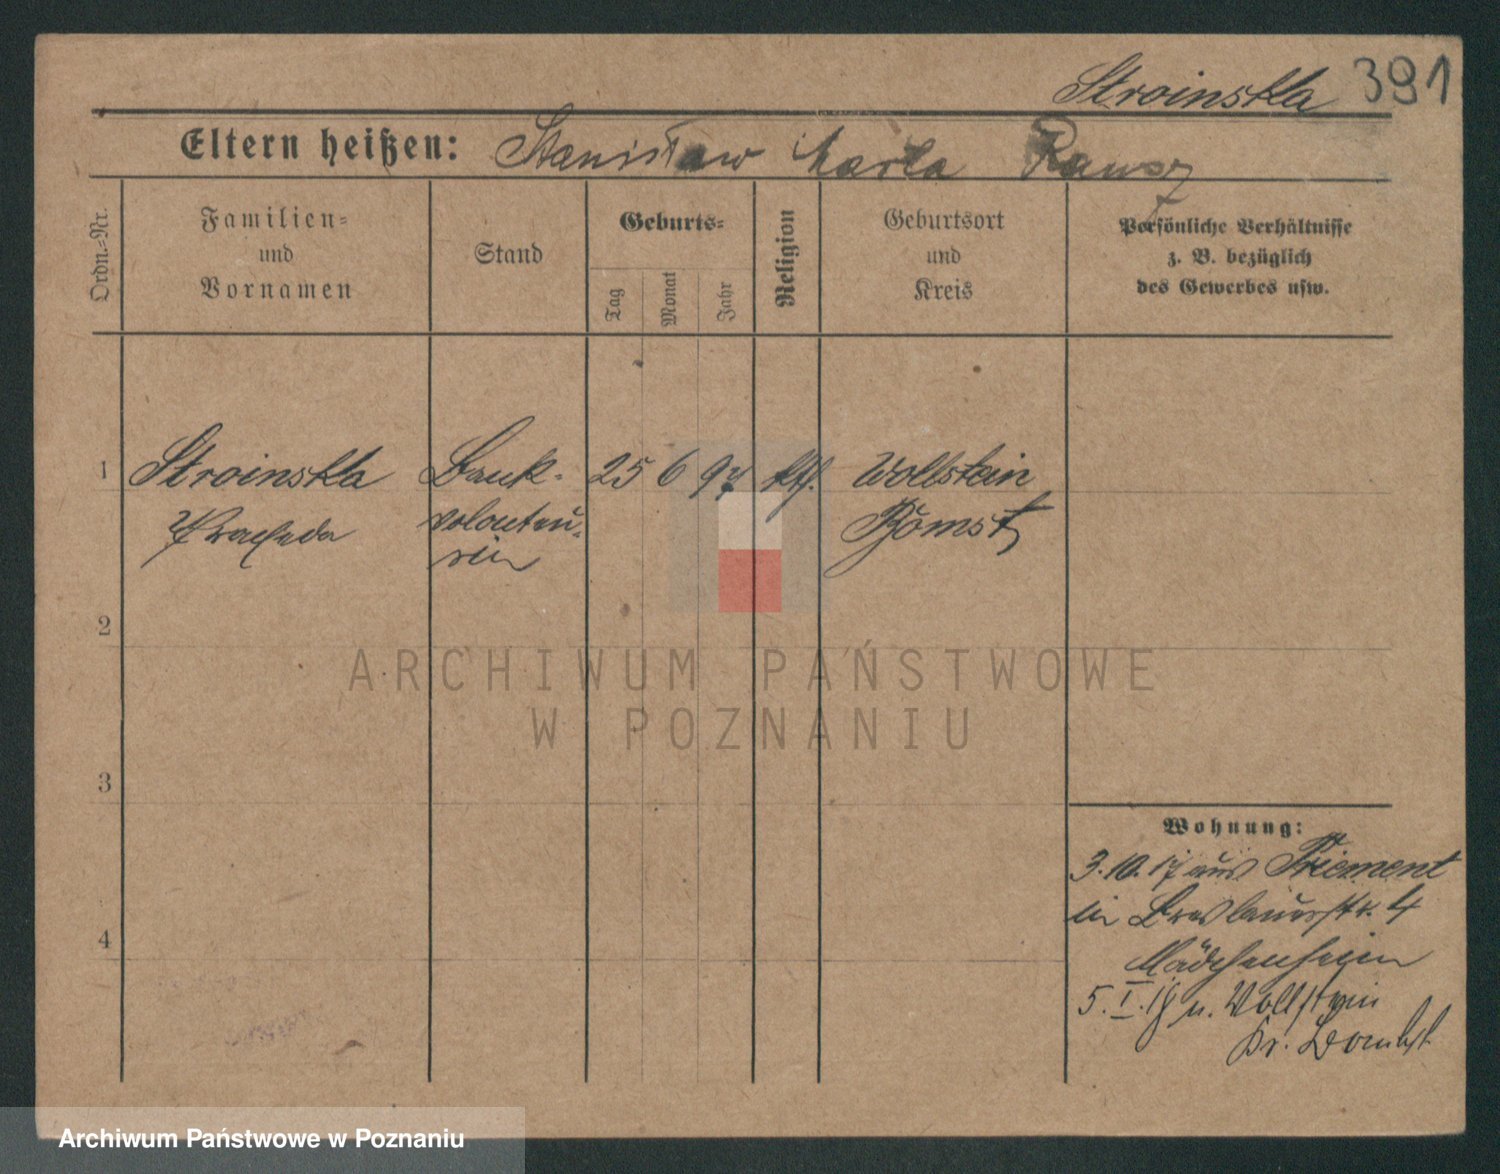 Stroinska 391
Eltern heißen: Stanisław Maria Rausz
Ordn.=Nr.
Familien=
und
Vornamen
Stand
Geburts=
Tag
Monat
Jahr
Religion
Geburtsort
und
Kreis
Persönliche Verhältnisse
z. B. bezüglich
des Gewerbes usw.
1
Stroinska
Praxeda
Bank-
volonteu-
rin
25 6 97
kth.
Wollstein
Bomst
2
3
4
Wohnung:
3.10.17 aus Priement
in Breslauerstr. 4
Mädchenheim
5.I.18 n. Wollstein
Kr. Bomst
ARCHIWUM PAŃSTWOWE
W POZNANIU
Archiwum Państwowe w Poznaniu